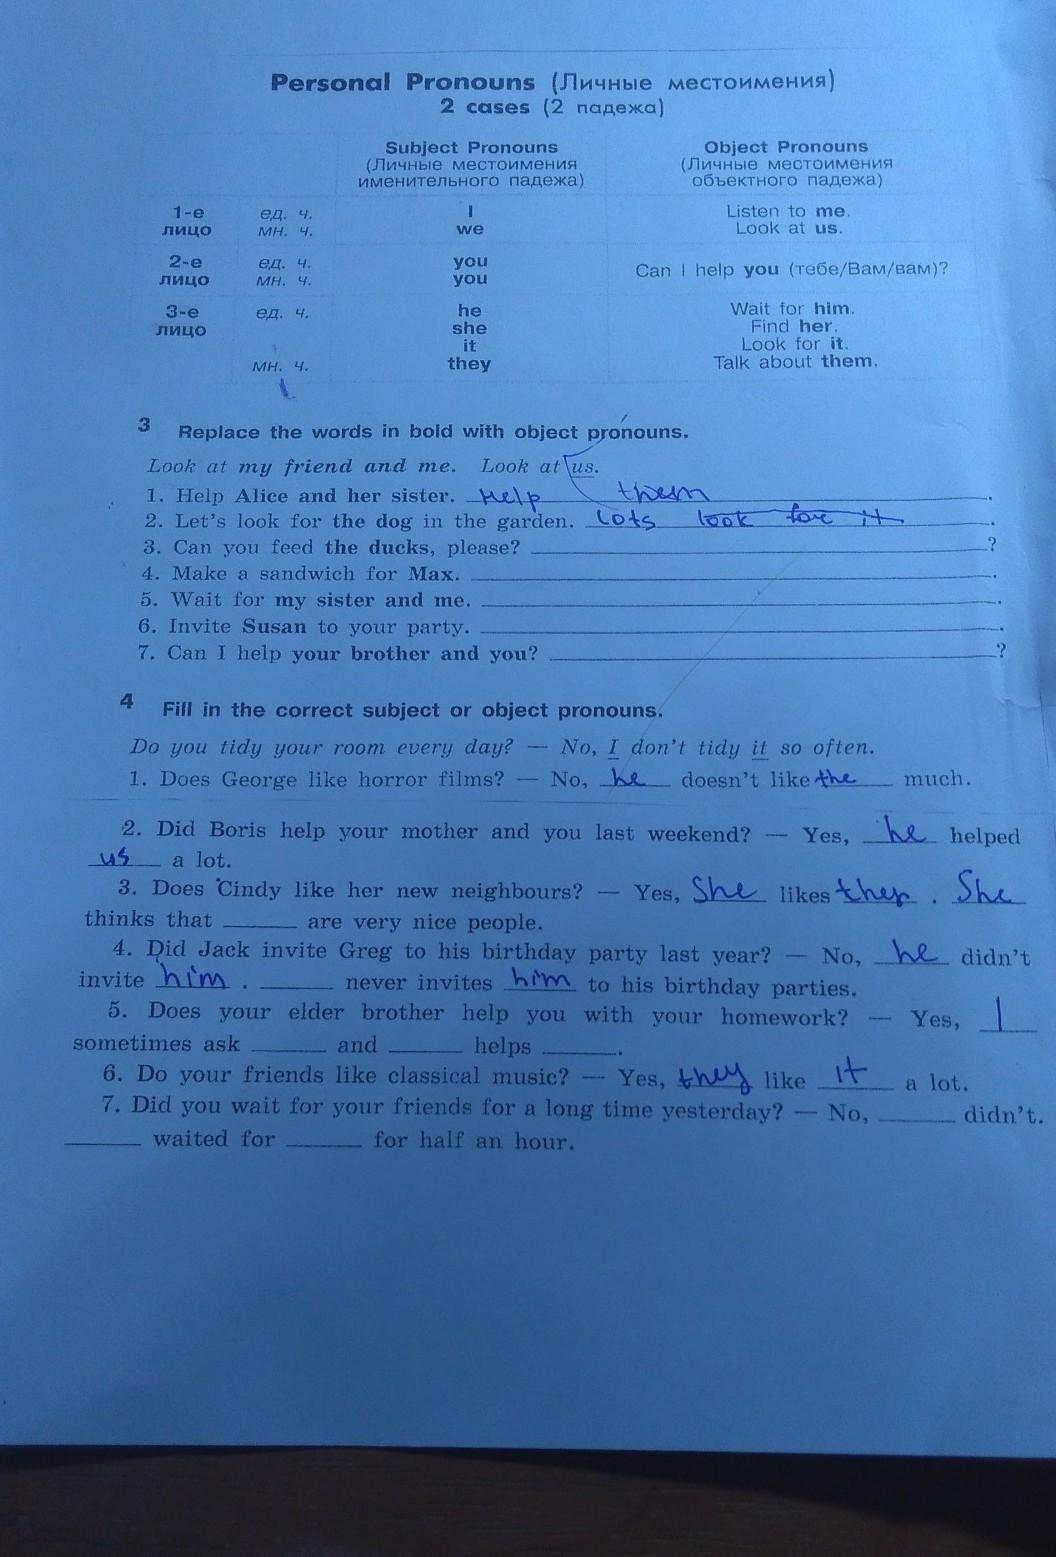 Personal Pronouns (Личные местоимения)
2 cases (2 падежа)
Subject Pronouns Object Pronouns
(Личные местоимения (Личные местоимения
именительного падежа) объектного падежа)
1-е ед. ч. I Listen to me.
лицо мн. ч. we Look at us.
2-е ед. ч. you Can I help you (тебе/Вам/вам)?
лицо мн. ч. you
3-е ед. ч. he Wait for him.
лицо she Find her.
it Look for it.
мн. ч. they Talk about them.
3 Replace the words in bold with object pronouns.
Look at my friend and me. Look at us.
1. Help Alice and her sister. Help them.
2. Let's look for the dog in the garden. Lots look for it.
3. Can you feed the ducks, please? ?
4. Make a sandwich for Max. .
5. Wait for my sister and me. .
6. Invite Susan to your party. .
7. Can I help your brother and you? ?
4 Fill in the correct subject or object pronouns.
Do you tidy your room every day? — No, I don't tidy it so often.
1. Does George like horror films? — No, he doesn't like the much.
2. Did Boris help your mother and you last weekend? — Yes, he helped
us a lot.
3. Does Cindy like her new neighbours? — Yes, She likes . She
thinks that ____ are very nice people.
4. Did Jack invite Greg to his birthday party last year? — No, he didn't
invite him . ____ never invites him to his birthday parties.
5. Does your elder brother help you with your homework? — Yes, I
sometimes ask ____ and ____ helps ____.
6. Do your friends like classical music? — Yes, they like it a lot.
7. Did you wait for your friends for a long time yesterday? — No, ____ didn't.
____ waited for ____ for half an hour.